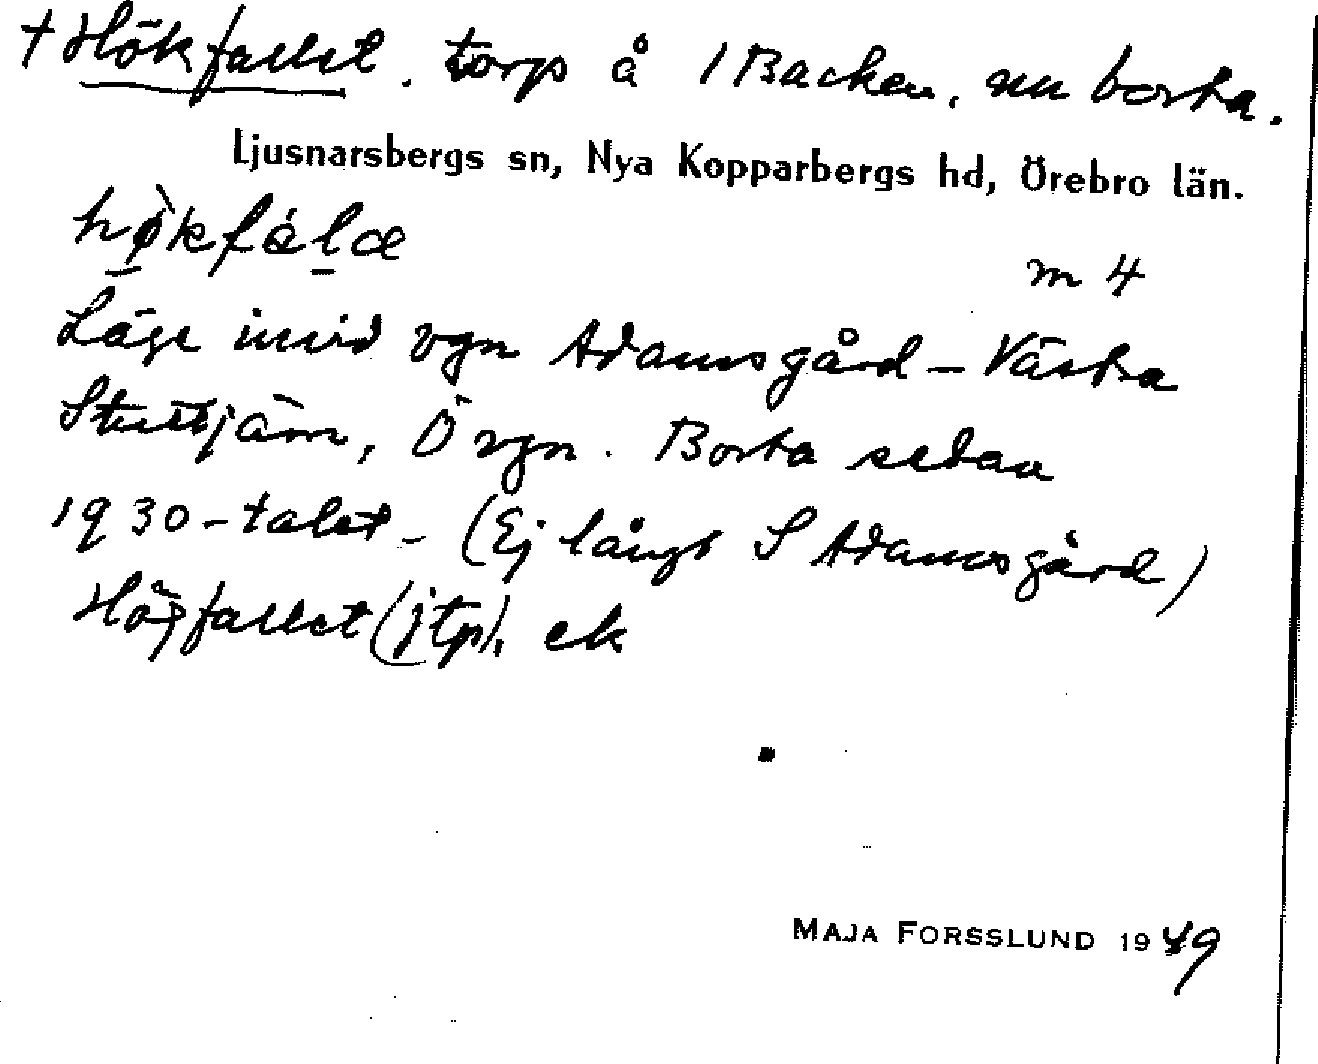 + Hökfallet. torp å 1 Backen, nu borta.
Ljusnarsbergs sn, Nya Kopparbergs hd, Örebro län.
hø̀kfálæ
m 4
Läge invid vgn Adamsgård – Västra
Stuttjärn, Ö vgn. Borta sedan
1930-talet – (Ej långt S Adamsgård)
Högfallet (jtp), ek
MAJA FORSSLUND 1949